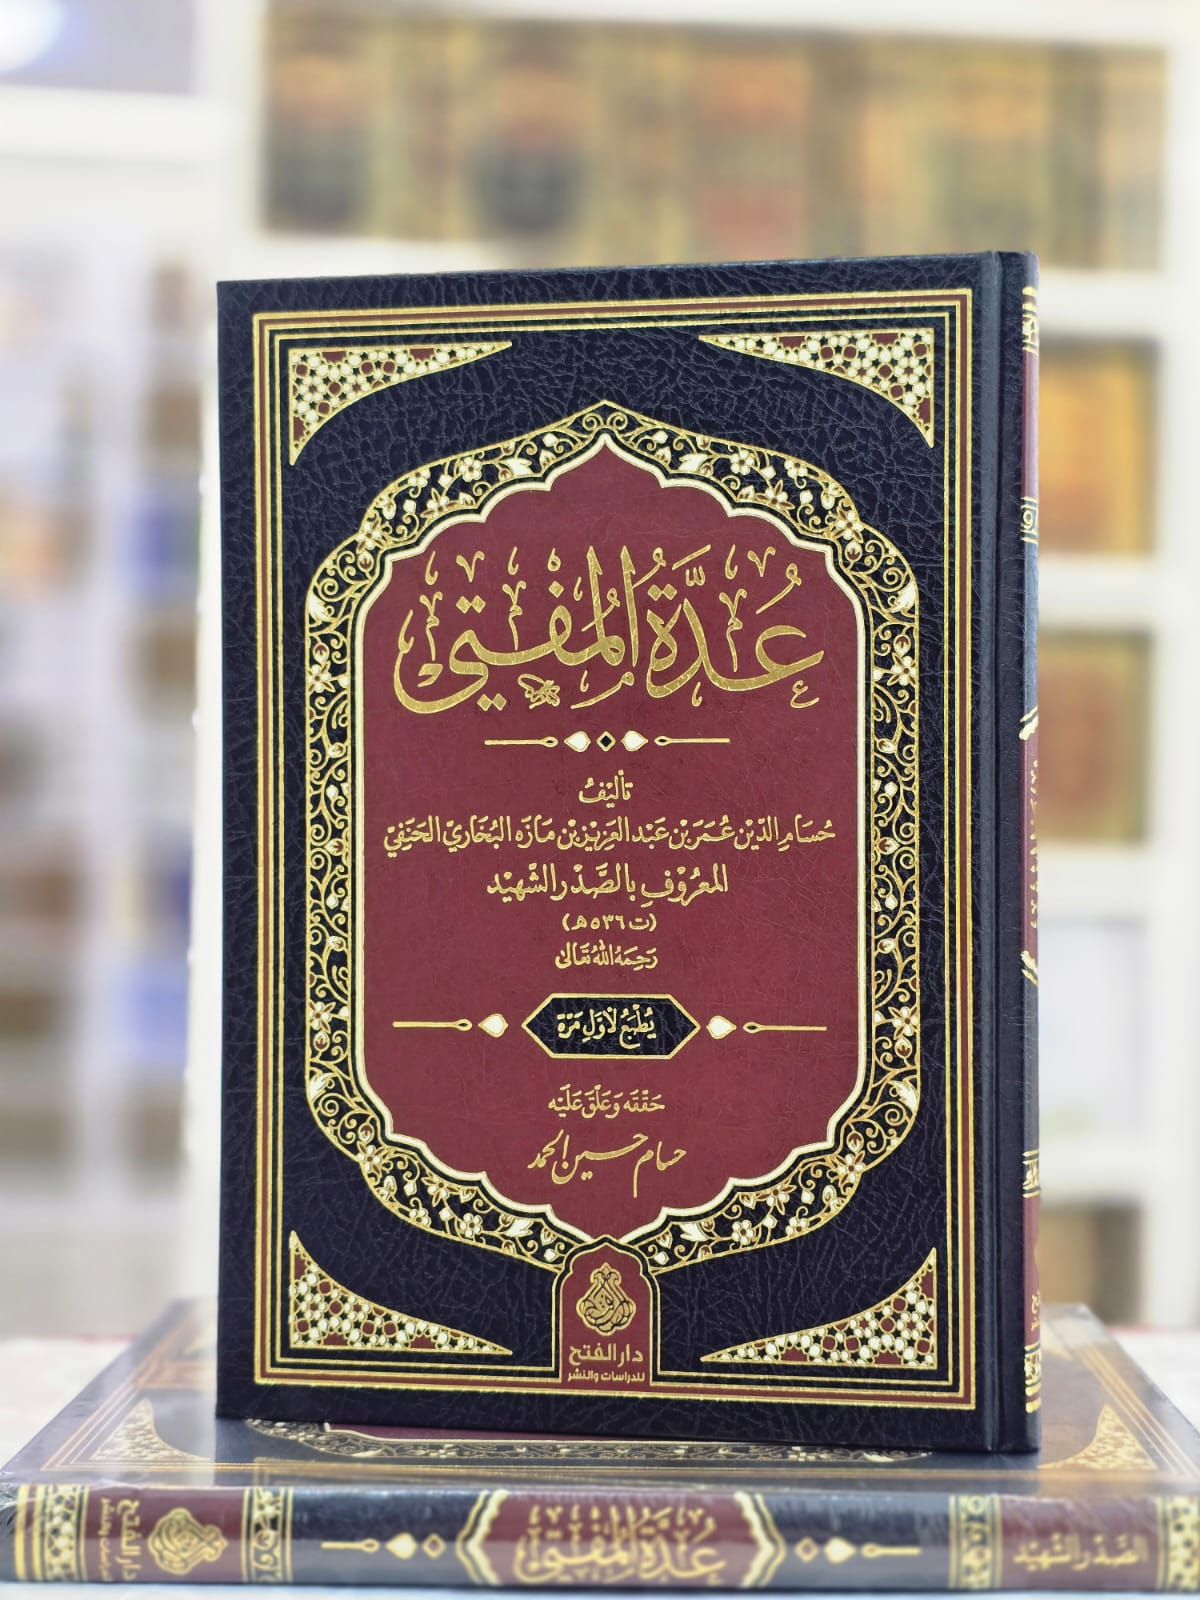 عُدَّةُ المُفْتِي
تأليفُ
حُسَامِ الدِّيْنِ عُمَرَ بْنِ عَبْدِ العَزِيْزِ بْنِ مَازَه البُخَارِيّ الحَنَفِيّ
المَعْرُوْفِ بِالصَّدْرِ الشَّهِيْد
(ت ٥٣٦ هـ)
رَحِمَهُ اللهُ تَعَالَى
يُطْبَعُ لِأَوَّلِ مَرَّة
حَقَّقَه وَعَلَّقَ عَلَيْه
حسام حسين الحمد
دار الفتح
للدراسات والنشر
الصَّدْرِ الشَّهِيْد
عُدَّةُ المُفْتِي
دار الفتح
للدراسات والنشر